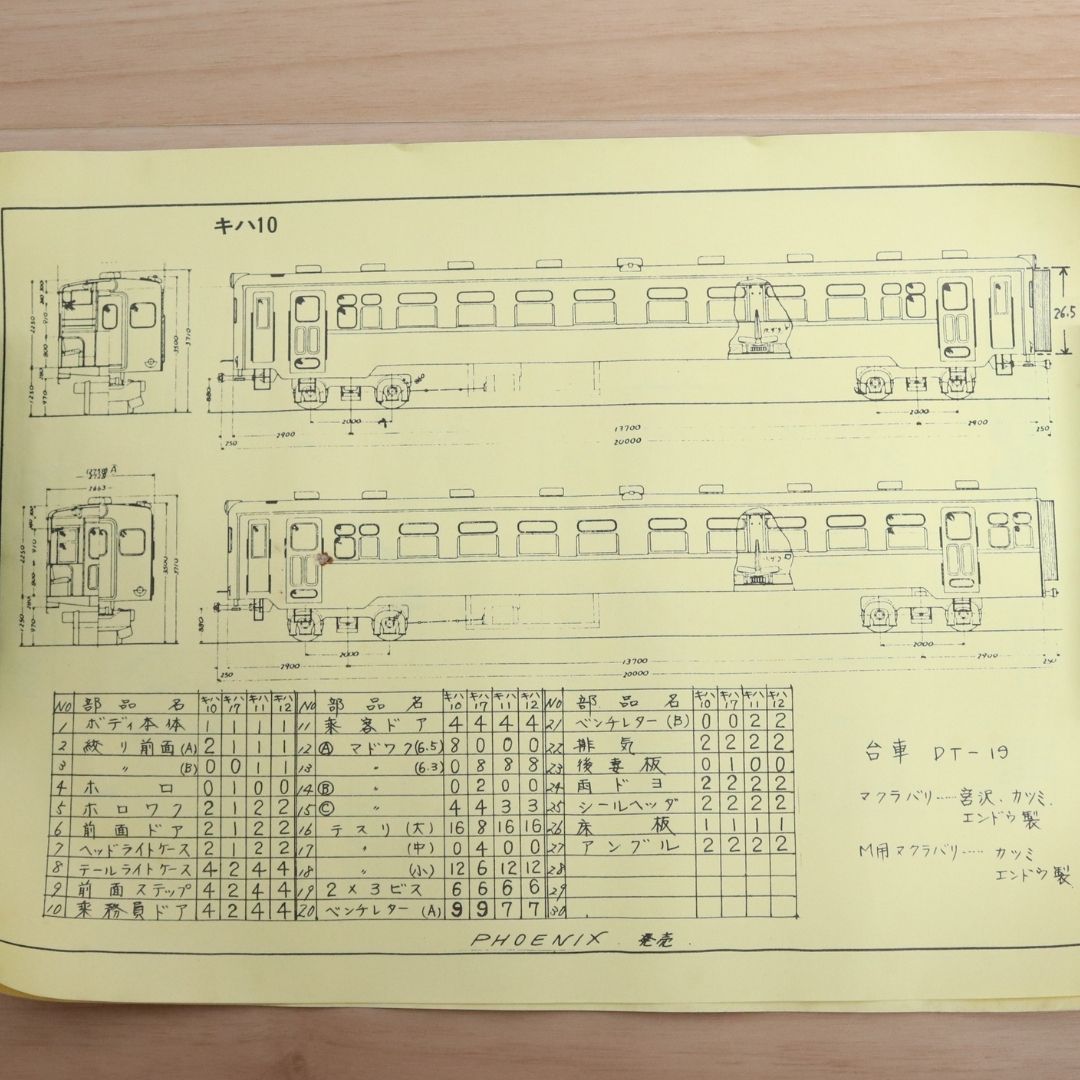 キハ10
26.5
2000
2900
13700
2000
2900
250
20000
250
2663
2000
2900
13700
2000
2900
250
20000
250
NO 部品名 キハ10 キハ17 キハ11 キハ12 NO 部品名 キハ10 キハ17 キハ11 キハ12 NO 部品名 キハ10 キハ17 キハ11 キハ12
1 ボディ本体 1 1 1 1 11 乗客ドア 4 4 4 4 21 ベンチレター(B) 0 0 2 2
2 絞り前面(A) 2 1 1 1 12 Ⓐ マドワク(6.5) 8 0 0 0 22 排気 2 2 2 2
3 〃 (B) 0 0 1 1 13 〃 (6.3) 0 8 8 8 23 後妻板 0 1 0 0
4 ホロ 0 1 0 0 14 Ⓑ 〃 0 2 0 0 24 雨ドヨ 2 2 2 2
5 ホロワク 2 1 2 2 15 Ⓒ 〃 4 4 3 3 25 シールヘッダ 2 2 2 2
6 前面ドア 2 1 2 2 16 テスリ(大) 16 8 16 16 26 床板 1 1 1 1
7 ヘッドライトケース 2 1 2 2 17 〃 (中) 0 4 0 0 27 アングル 2 2 2 2
8 テールライトケース 4 2 4 4 18 〃 (小) 12 6 12 12 28
9 前面ステップ 4 2 4 4 19 2×3ビス 6 6 6 6 29
10 乗務員ドア 4 2 4 4 20 ベンチレター(A) 9 9 7 7 30
台車 DT-19
マクラバリ……宮沢、カツミ、
エンドウ製
M用マクラバリ…… カツミ
エンドウ製
PHOENIX 発売.